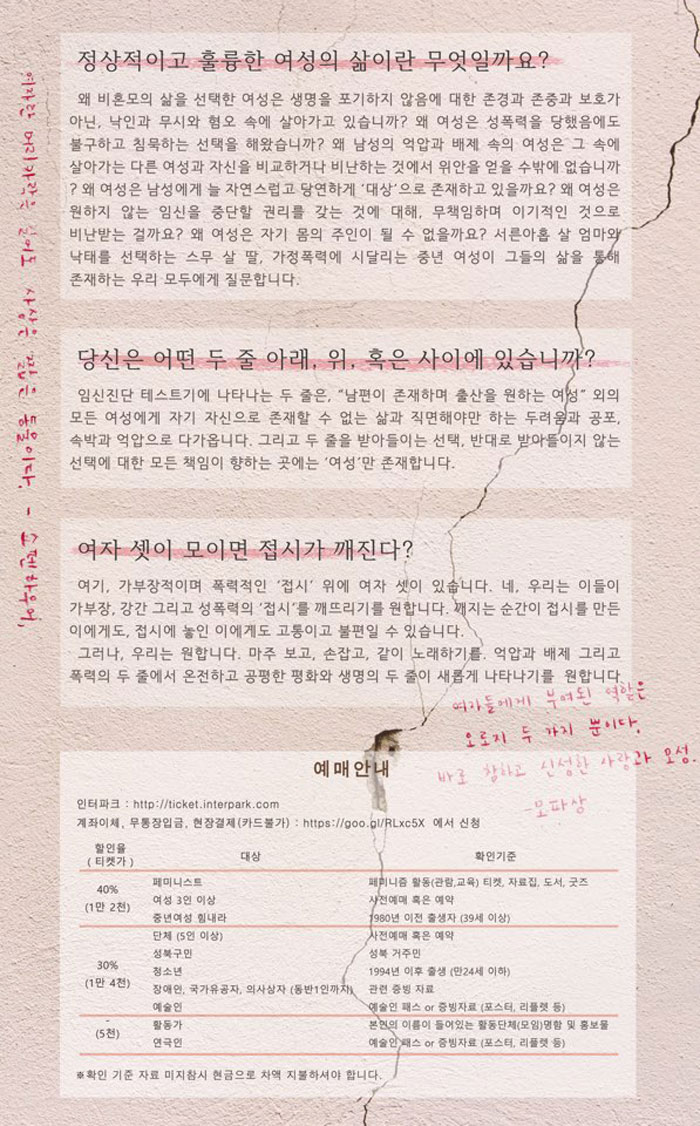 정상적이고 훌륭한 여성의 삶이란 무엇일까요?
왜 비혼모의 삶을 선택한 여성은 생명을 포기하지 않음에 대한 존경과 존중과 보호가
아닌, 낙인과 무시와 혐오 속에 살아가고 있습니까? 왜 여성은 성폭력을 당했음에도
불구하고 침묵하는 선택을 해왔습니까? 왜 남성의 억압과 배제 속의 여성은 그 속에
살아가는 다른 여성과 자신을 비교하거나 비난하는 것에서 위안을 얻을 수밖에 없습니까
? 왜 여성은 남성에게 늘 자연스럽고 당연하게 ‘대상’으로 존재하고 있을까요? 왜 여성은
원하지 않는 임신을 중단할 권리를 갖는 것에 대해, 무책임하며 이기적인 것으로
비난받는 걸까요? 왜 여성은 자기 몸의 주인이 될 수 없을까요? 서른아홉 살 엄마와
낙태를 선택하는 스무 살 딸, 가정폭력에 시달리는 중년 여성이 그들의 삶을 통해
존재하는 우리 모두에게 질문합니다.
당신은 어떤 두 줄 아래, 위, 혹은 사이에 있습니까?
임신진단 테스트기에 나타나는 두 줄은, “남편이 존재하며 출산을 원하는 여성” 외의
모든 여성에게 자기 자신으로 존재할 수 없는 삶과 직면해야만 하는 두려움과 공포,
속박과 억압으로 다가옵니다. 그리고 두 줄을 받아들이는 선택, 반대로 받아들이지 않는
선택에 대한 모든 책임이 향하는 곳에는 ‘여성’만 존재합니다.
여자 셋이 모이면 접시가 깨진다?
여기, 가부장적이며 폭력적인 ‘접시’ 위에 여자 셋이 있습니다. 네, 우리는 이들이
가부장, 강간 그리고 성폭력의 ‘접시’를 깨뜨리기를 원합니다. 깨지는 순간이 접시를 만든
이에게도, 접시에 놓인 이에게도 고통이고 불편일 수 있습니다.
그러나, 우리는 원합니다. 마주 보고, 손잡고, 같이 노래하기를. 억압과 배제 그리고
폭력의 두 줄에서 온전하고 공평한 평화와 생명의 두 줄이 새롭게 나타나기를 원합니다
여자란 머리카락은 길어도 사상은 짧은 동물이다. - 쇼펜하우어
여자들에게 부여된 역할은
오로지 두 가지 뿐이다,
바로 참하고 신성한 사랑과 모성.
-모파상
예매안내
인터파크 : http://ticket.interpark.com
계좌이체, 무통장입금, 현장결제(카드불가) : https://goo.gl/RLxc5X 에서 신청
할인율 대상 확인기준
( 티켓가 )
40%
(1만 2천)
페미니스트 페미니즘 활동(관람,교육) 티켓, 자료집, 도서, 굿즈
여성 3인 이상 사전예매 혹은 예약
중년여성 힘내라 1980년 이전 출생자 (39세 이상)
30%
(1만 4천)
단체 (5인 이상) 사전예매 혹은 예약
성북구민 성북 거주민
청소년 1994년 이후 출생 (만24세 이하)
장애인, 국가유공자, 의사상자 (동반1인까지) 관련 증빙 자료
예술인 예술인 패스 or 증빙자료 (포스터, 리플렛 등)
-
(5천)
활동가 본인의 이름이 들어있는 활동단체(모임)명함 및 홍보물
연극인 예술인 패스 or 증빙자료 (포스터, 리플렛 등)
※확인 기준 자료 미지참시 현금으로 차액 지불하셔야 합니다.